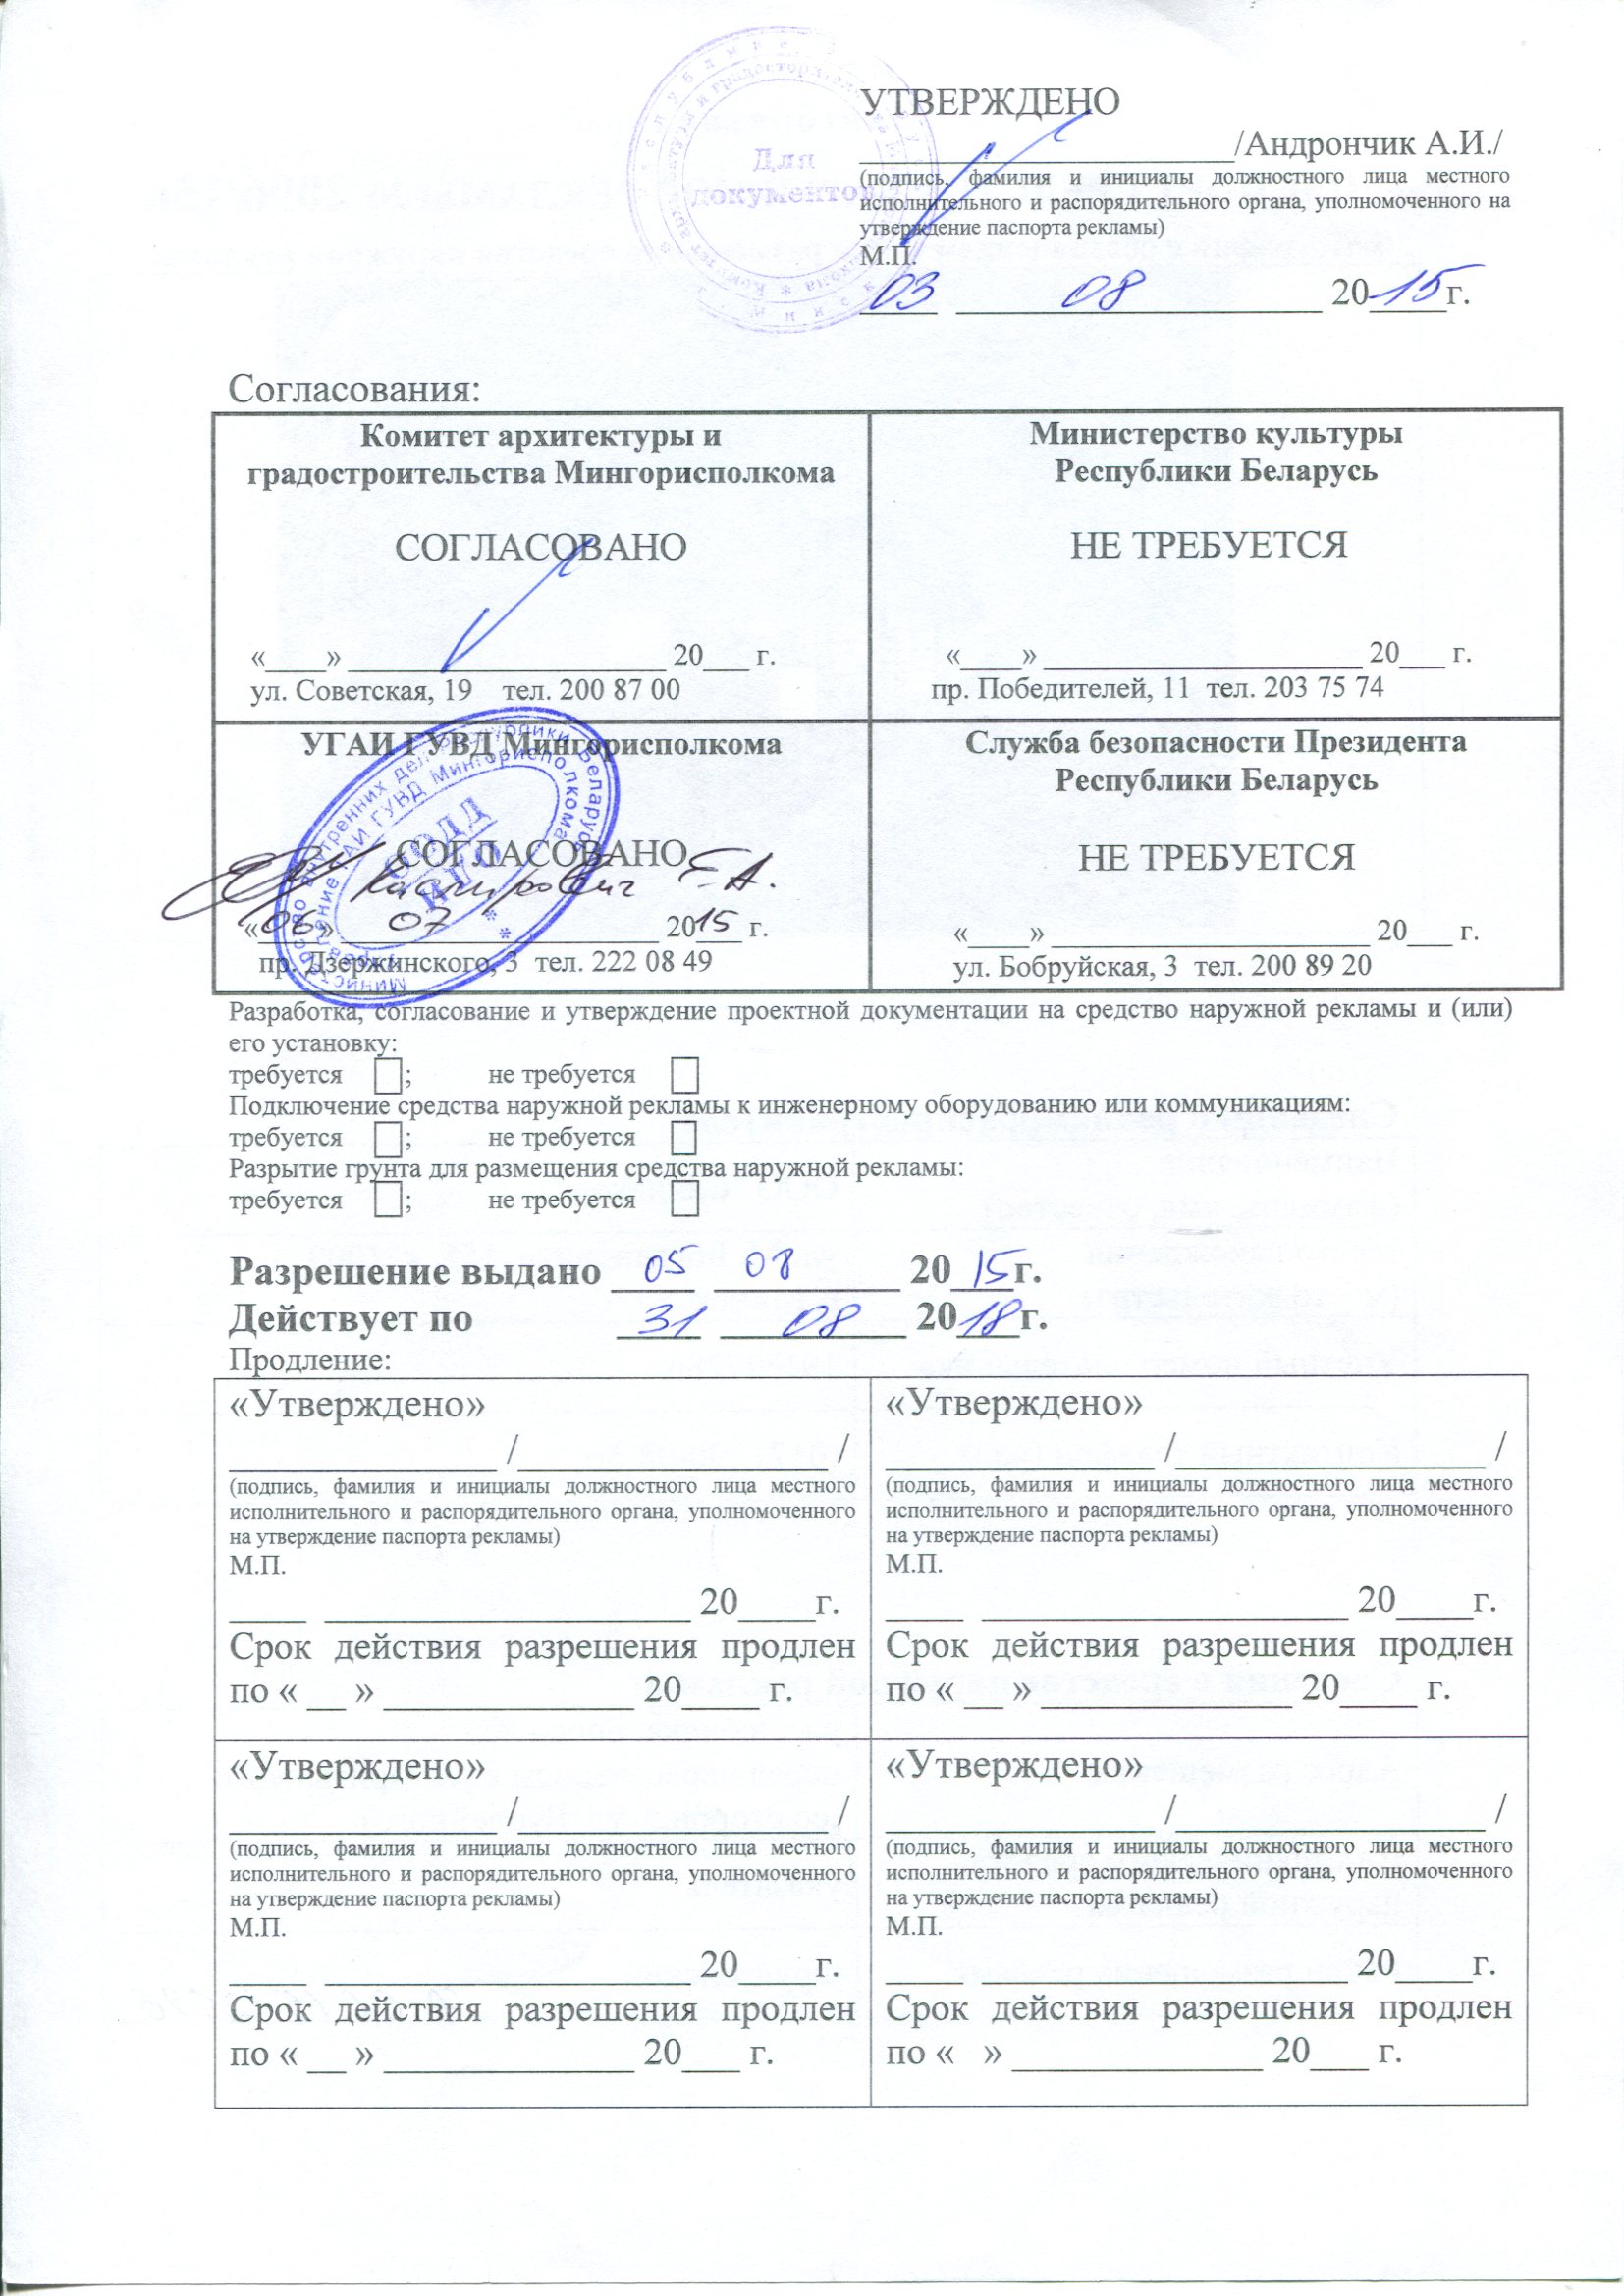 УТВЕРЖДЕНО
____________________/Андрончик А.И./
(подпись, фамилия и инициалы должностного лица местного
исполнительного и распорядительного органа, уполномоченного на
утверждение паспорта рекламы)
М.П.
03 08 2015г.
Для
документов
Согласования:
Комитет архитектуры и
градостроительства Мингорисполкома
СОГЛАСОВАНО
«____» ______________________ 20___ г.
ул. Советская, 19 тел. 200 87 00
Министерство культуры
Республики Беларусь
НЕ ТРЕБУЕТСЯ
«____» _____________________ 20___ г.
пр. Победителей, 11 тел. 203 75 74
УГАИ ГУВД Мингорисполкома
СОГЛАСОВАНО
Е.А.
«06» 07 2015 г.
пр. Дзержинского, 3 тел. 222 08 49
Служба безопасности Президента
Республики Беларусь
НЕ ТРЕБУЕТСЯ
«____» _____________________ 20___ г.
ул. Бобруйская, 3 тел. 200 89 20
Разработка, согласование и утверждение проектной документации на средство наружной рекламы и (или)
его установку:
требуется ; не требуется
Подключение средства наружной рекламы к инженерному оборудованию или коммуникациям:
требуется ; не требуется
Разрытие грунта для размещения средства наружной рекламы:
требуется ; не требуется
Разрешение выдано 05 08 2015г.
Действует по 31 08 2018г.
Продление:
«Утверждено»
______________ /________________ /
(подпись, фамилия и инициалы должностного лица местного
исполнительного и распорядительного органа, уполномоченного
на утверждение паспорта рекламы)
М.П.
____ ___________________ 20____г.
Срок действия разрешения продлен
по « __ » _____________ 20____ г.
«Утверждено»
______________ /________________ /
(подпись, фамилия и инициалы должностного лица местного
исполнительного и распорядительного органа, уполномоченного
на утверждение паспорта рекламы)
М.П.
____ ___________________ 20____г.
Срок действия разрешения продлен
по « __ » _____________ 20____ г.
«Утверждено»
______________ /________________ /
(подпись, фамилия и инициалы должностного лица местного
исполнительного и распорядительного органа, уполномоченного
на утверждение паспорта рекламы)
М.П.
____ ___________________ 20____г.
Срок действия разрешения продлен
по « __ » _____________ 20___ г.
«Утверждено»
______________ /________________ /
(подпись, фамилия и инициалы должностного лица местного
исполнительного и распорядительного органа, уполномоченного
на утверждение паспорта рекламы)
М.П.
____ ___________________ 20____г.
Срок действия разрешения продлен
по « » _____________ 20___ г.